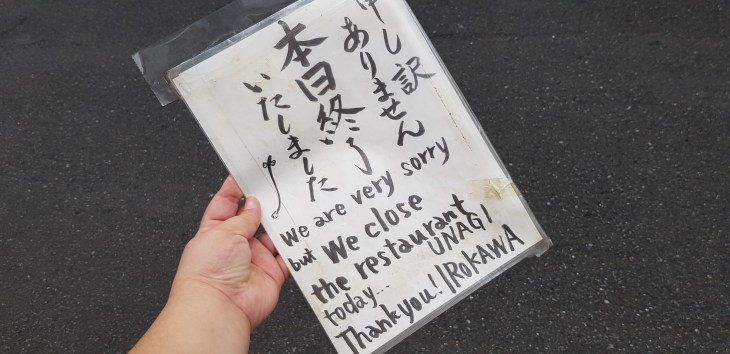 申し訳
ありません
本日終了
いたしました
We are very sorry
but We close
the restaurant
today...
UNAGI
Thank you! IROKAWA